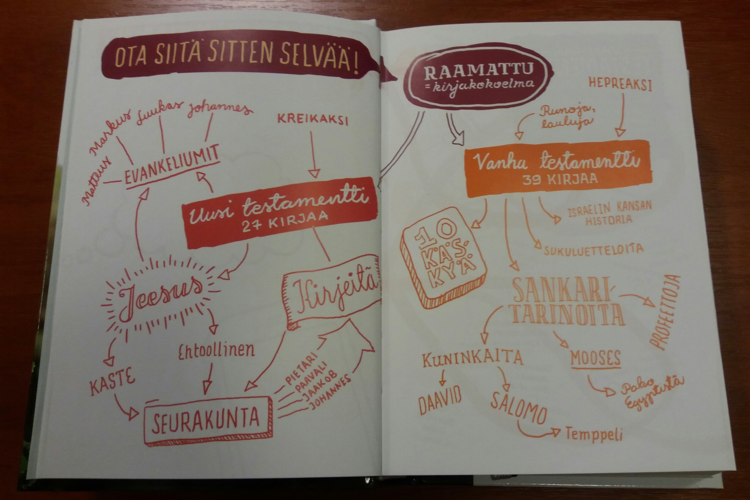 OTA SIITÄ SITTEN SELVÄÄ!
Matteus
Markus
Luukas
Johannes
EVANKELIUMIT
KREIKAKSI
Uusi testamentti
27 KIRJAA
Jeesus
Kirjeitä
KASTE
Ehtoollinen
SEURAKUNTA
PIETARI
PAAVALI
JAAKOB
JOHANNES
RAAMATTU
=kirjakokoelma
HEPREAKSI
Runoja,
lauluja
Vanha testamentti
39 KIRJAA
10
KÄS-
KYÄ
ISRAELIN KANSAN
HISTORIA
SUKULUETTELOITA
SANKARI-
TARINOITA
PROFEETTOJA
KUNINKAITA
MOOSES
DAAVID
SALOMO
Pako
Egyptistä
Temppeli